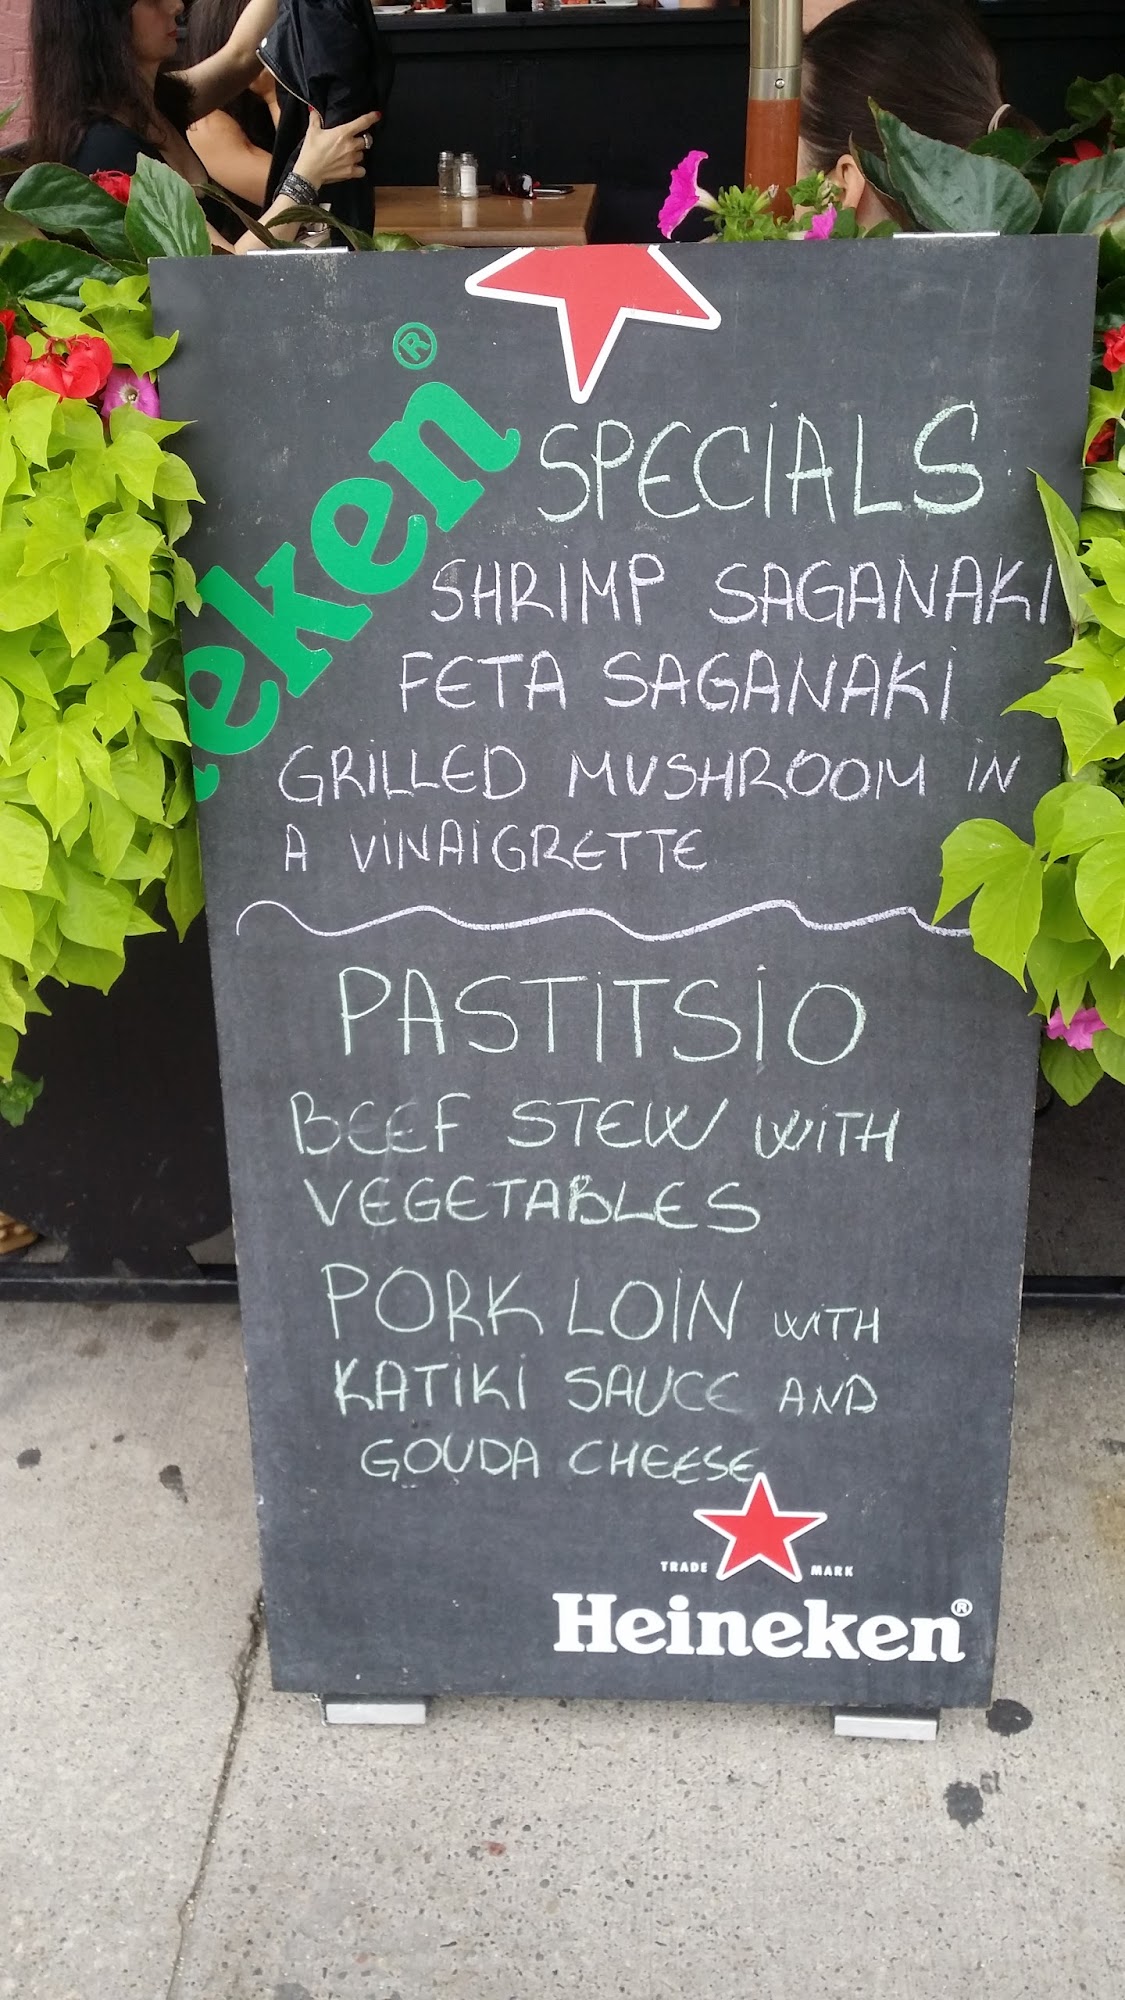 eken®
SPECIALS
SHRIMP SAGANAKI
FETA SAGANAKI
GRILLED MUSHROOM IN
A VINAIGRETTE
PASTITSIO
BEEF STEW WITH
VEGETABLES
PORK LOIN WITH
KATIKI SAUCE AND
GOUDA CHEESE
TRADE MARK
Heineken®